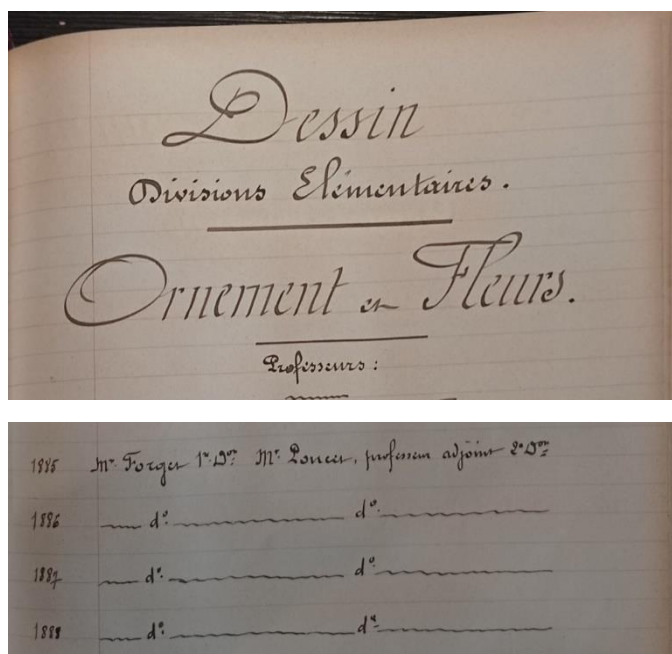 Dessin
Divisions Elémentaires.
Ornement et Fleurs.
Professeurs :
1885 Mr. Forget 1re Don. Mr. Poncet, professeur adjoint 2e Don
1886 — do. — do. —
1887 — do. — do. —
1888 — do. — do. —